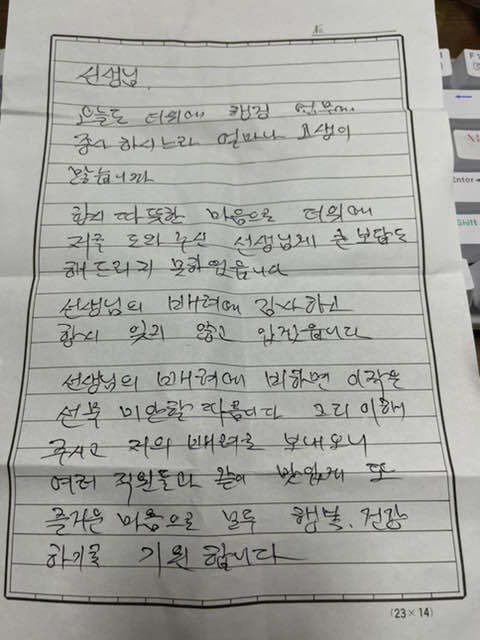 No
선생님.
오늘도 더위에 행정 업무에
종사 하시느라 얼마나 고생이
많습니까
항시 따뜻한 마음으로 더위에
저를 도와 주신 선생님께 큰 보답도
해 드리지 못하였읍니다
선생님의 배려에 감사하고
항시 잊지 않고 있겠읍니다
선생님의 배려에 비하면 이작은
선물 미안할 따름이다 그리 이해
주시고 저의 배려를 보내오니
여러 직원들과 같이 맛있게 또
즐거운 마음으로 모두 행복, 건강
하기를 기원 합니다
(23×14)
Enter
Shift